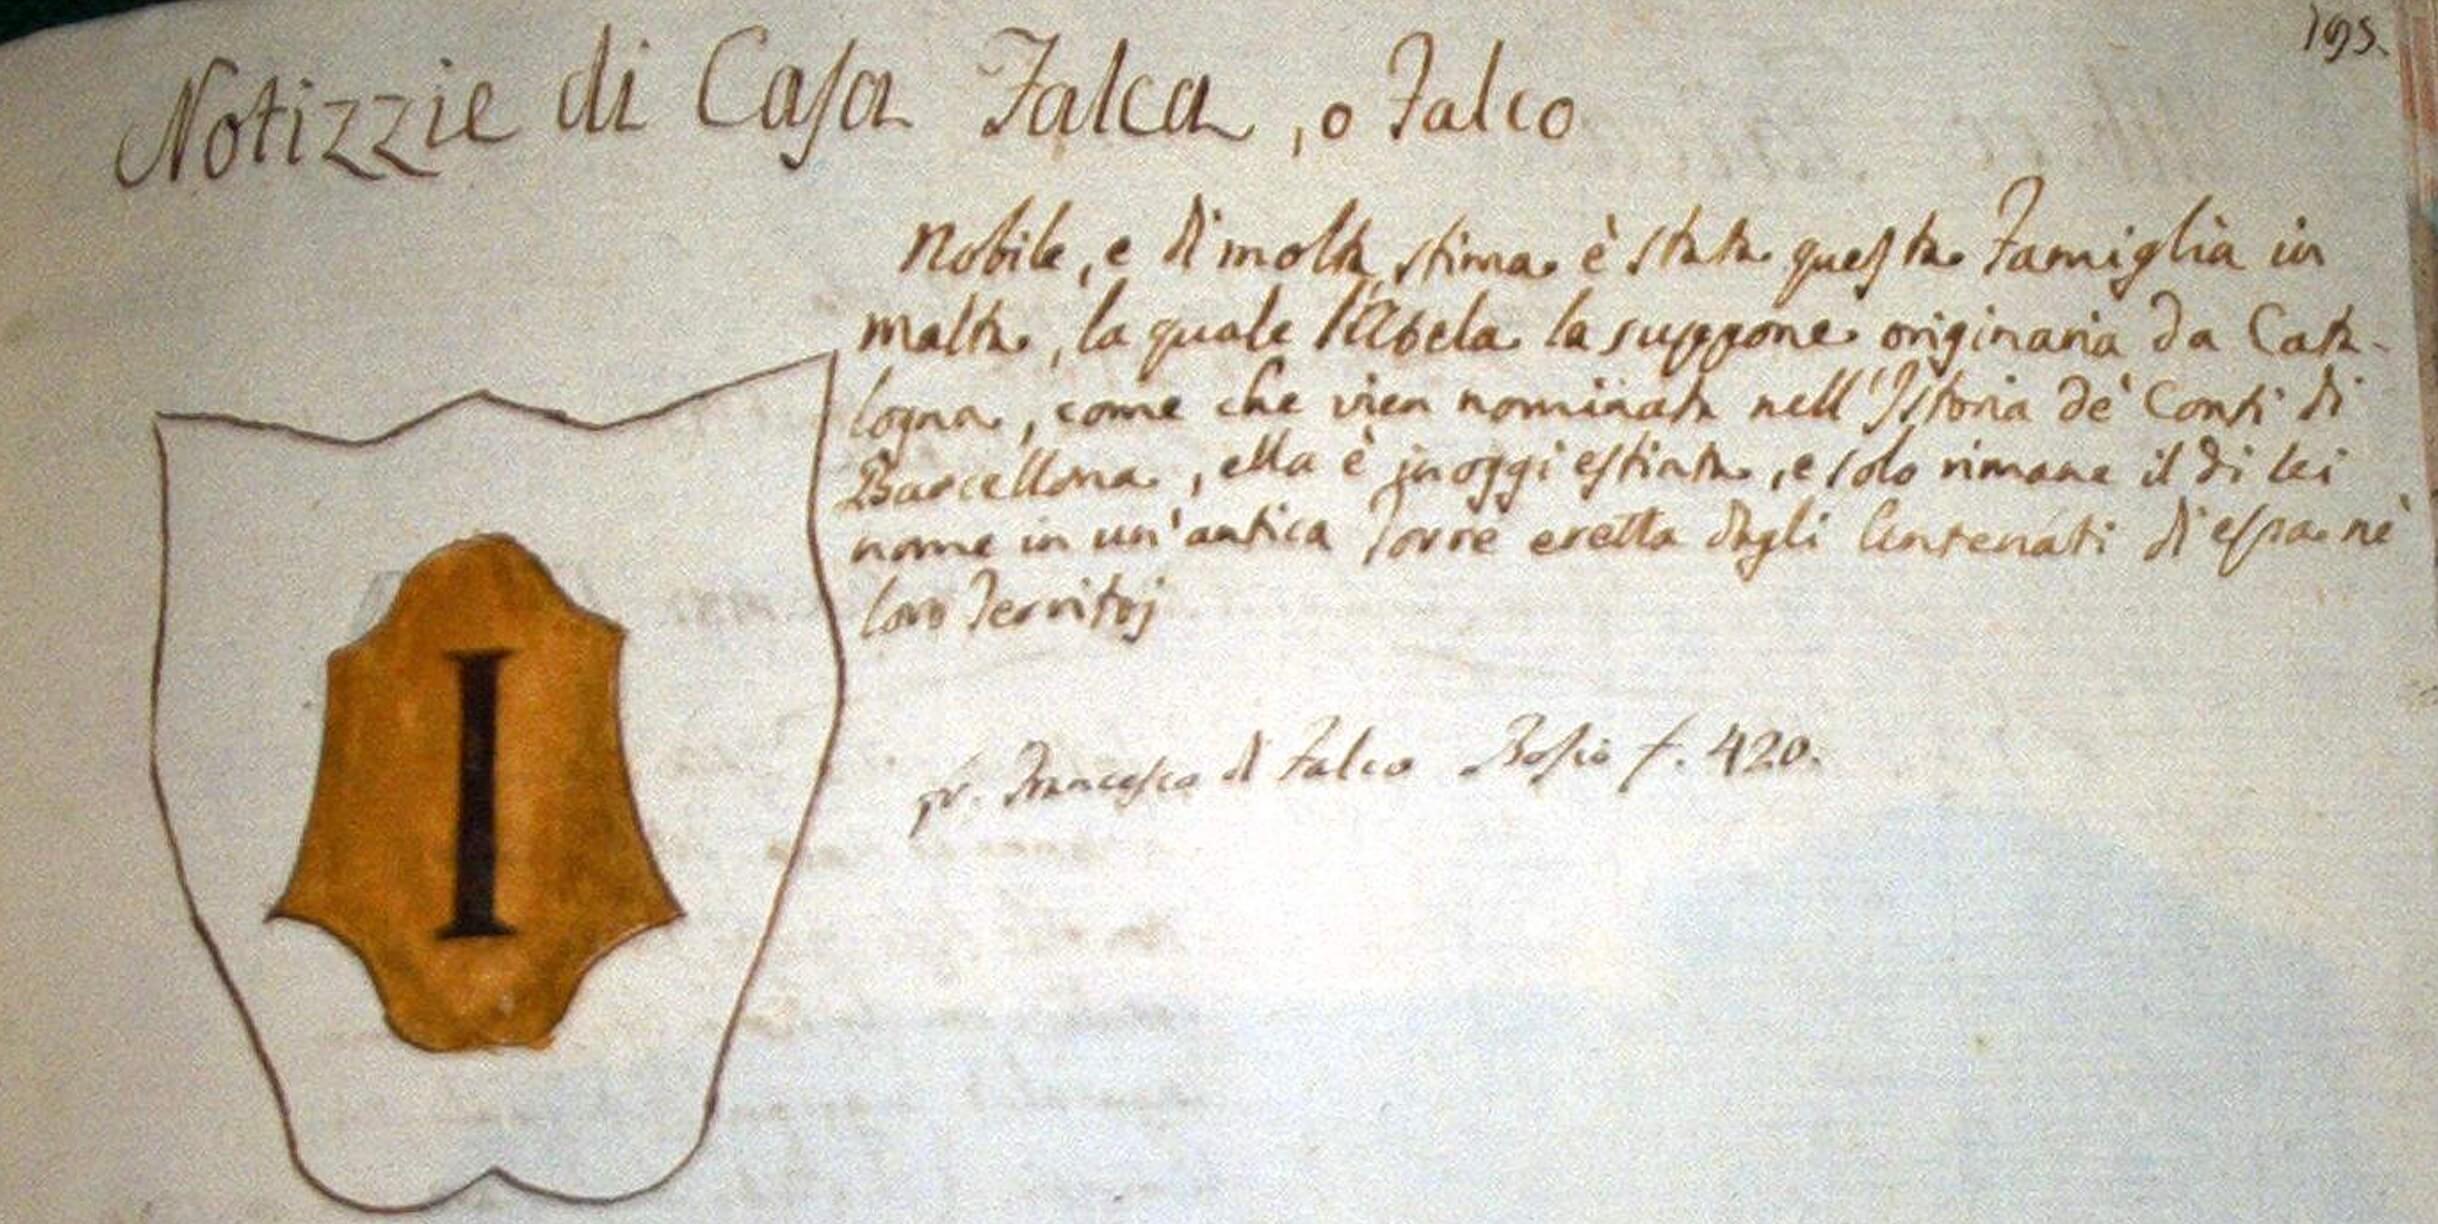 195.
Notizzie di Casa Falca, o Falco
Nobile, e di molta stima è stata questa Famiglia in
Malta, la quale l'Abela la suppone originaria da Cata-
logna, come che vien nominata nell'Istoria de' Conti di
Barcellona, ella è in oggi estinta, e solo rimane il di lei
nome in un'antica Torre eretta dagli Antenati di essa ne'
loro Territoj
I
fr. Francesco di Falco Bosio f. 420.